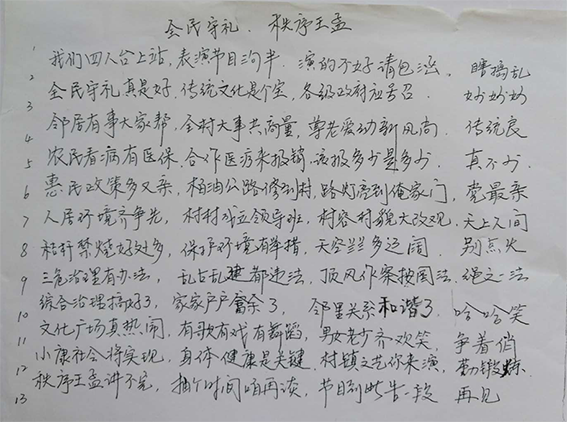 全民守礼、秩序王孟
1 我们四人台上站，表演节目沟半，演的不好请包涵、瞎搞乱
2 全民守礼真是好，传统文化是个宝，各级政府应号召、妙妙妙
3 邻居有事大家帮，全村大事共商量，尊老爱幼新风尚、传统良
4 农民看病有医保，合作医疗来报销，该报多少是多少、真不少
5 惠民政策多又亲，柏油公路修到村，路灯亮到俺家门，党最亲
6 人居环境齐争先，村村成立领导班，村容村貌大改观、天上人间
7 秸秆禁烧好处多，保护环境有举措，天空兰兰多辽阔、别点火
8 三色治理有办法，乱占乱建都违法，顶风作案按国法、绳之一法
9 综合治理搞好了，家家户户富余了，邻里关系和谐了、哈哈笑
10 文化广场真热闹，有歌有戏有舞蹈，男女老少齐欢笑、争着俏
11 小康社会将实现，身体健康是关键，村镇文艺你来演，勤锻炼
12 秩序王孟讲不完，抽个时间咱再谈，节目到此告一段 再见
13